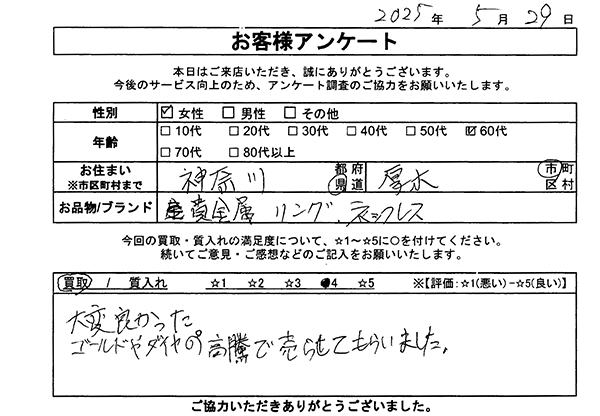 2025年 5月 29日
お客様アンケート
本日はご来店いただき、誠にありがとうございます。
今後のサービス向上のため、アンケート調査のご協力をお願いいたします。
性別 ☑ 女性 □ 男性 □ その他
年齢 □ 10代 □ 20代 □ 30代 □ 40代 □ 50代 ☑ 60代
□ 70代 □ 80代以上
お住まい ※市区町村まで 神奈川 都府県道 厚木 市町区村
お品物/ブランド 貴金属 リング、ネックレス
今回の買取・質入れの満足度について、☆1～☆5に○を付けてください。
続いてご意見・ご感想などのご記入をお願いいたします。
買取 / 質入れ ☆1 ☆2 ☆3 ●4 ☆5 ※【評価:☆1(悪い)-☆5(良い)】
大変良かった
ゴールドやダイヤの高騰で売らせてもらいました。
ご協力いただきありがとうございました。